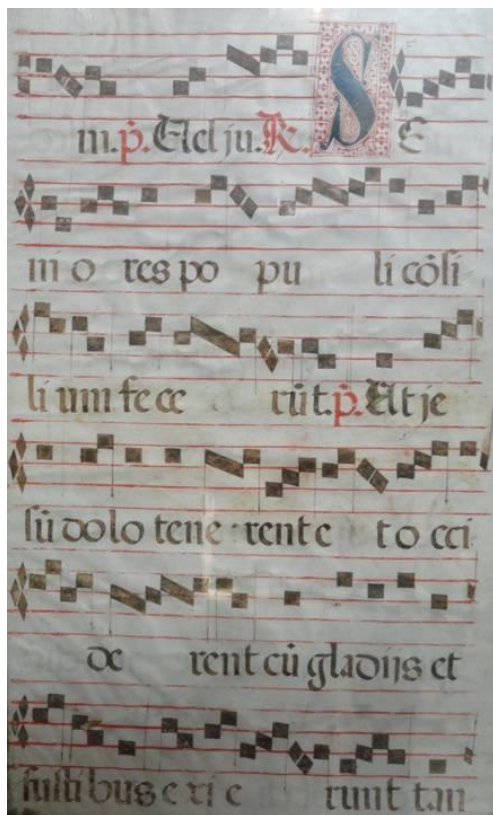 m. p̄. Ad ju. R. S E
ni o res po pu li cōsi
li um fe ce rūt. p̄. Ut je
sū dolo tene rent e t o cci
de rent cū gladijs et
fusti bus e xi e runt tan